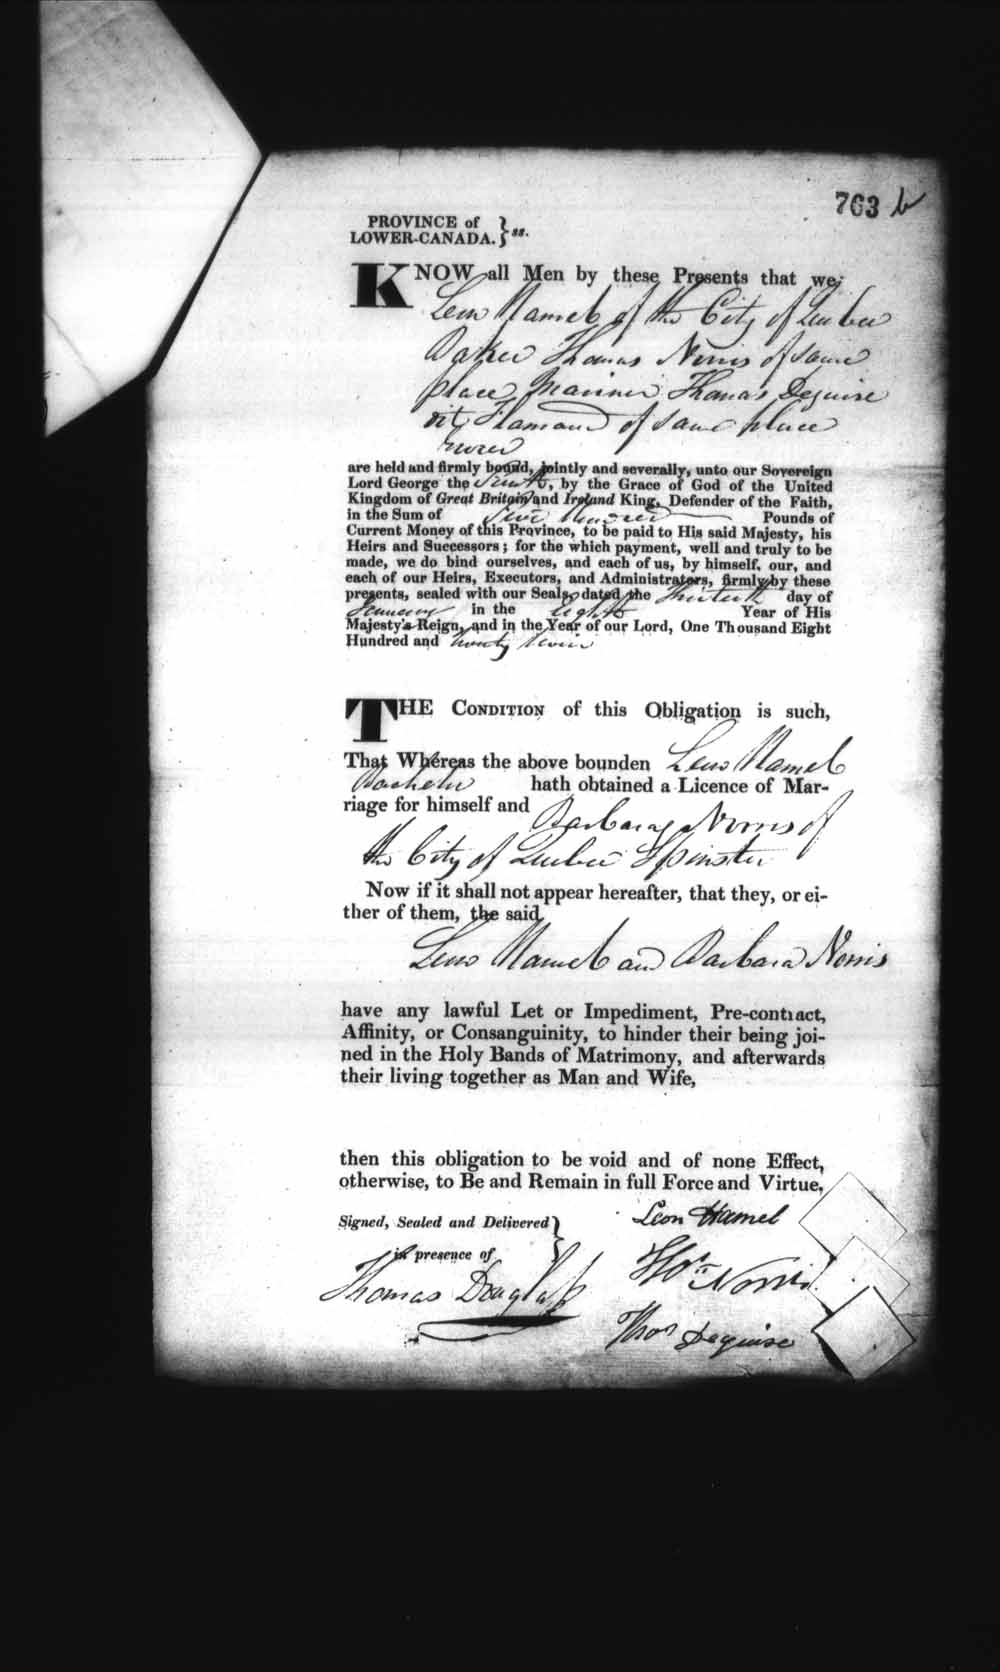 763 b
PROVINCE of
LOWER-CANADA. } ss.
KNOW all Men by these Presents that we,
Leon Hamel of the City of Quebec
Baker Thomas Norris of same
place Mariner Thomas Deguise
dit Flamand of same place
are held and firmly bound, jointly and severally, unto our Sovereign
Lord George the Fourth, by the Grace of God of the United
Kingdom of Great Britain and Ireland King, Defender of the Faith,
in the Sum of Hundred Pounds of
Current Money of this Province, to be paid to His said Majesty, his
Heirs and Successors; for the which payment, well and truly to be
made, we do bind ourselves, and each of us, by himself, our, and
each of our Heirs, Executors, and Administrators, firmly by these
presents, sealed with our Seals, dated the day of
January in the Eighth Year of His
Majesty's Reign, and in the Year of our Lord, One Thousand Eight
Hundred and twenty Seven
THE CONDITION of this Obligation is such,
That Whereas the above bounden Leon Hamel
Bachelor hath obtained a Licence of Mar-
riage for himself and Barbara Norris of
the City of Quebec Spinster
Now if it shall not appear hereafter, that they, or ei-
ther of them, the said
Leon Hamel and Barbara Norris
have any lawful Let or Impediment, Pre-contract,
Affinity, or Consanguinity, to hinder their being joi-
ned in the Holy Bands of Matrimony, and afterwards
their living together as Man and Wife,
then this obligation to be void and of none Effect,
otherwise, to Be and Remain in full Force and Virtue,
Signed, Sealed and Delivered }
in presence of
Thomas Douglass
Leon Hamel
Thos Norris
Thos Deguise